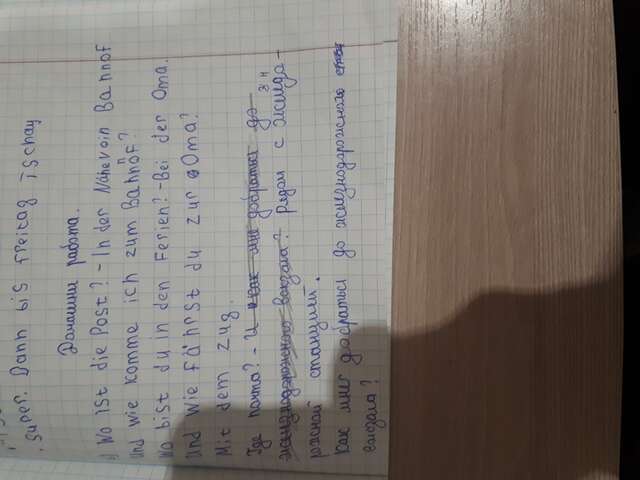 Super. Dann bis Freitag Tschay
Домашняя работа
1) Wo ist die Post? - In der Nähe voin Bahnhof
Und wie komme ich zum Bahnhöf?
Wo bist du in den Ferien? - Bei der Oma.
Und wie fährst du zur Oma?
Mit dem Zug.
Где почта? - И как мне добраться до
железнодорожного вокзала? Рядом с железнодо-
рожной станцией.
Как мне добраться до железнодорожного
вокзала?